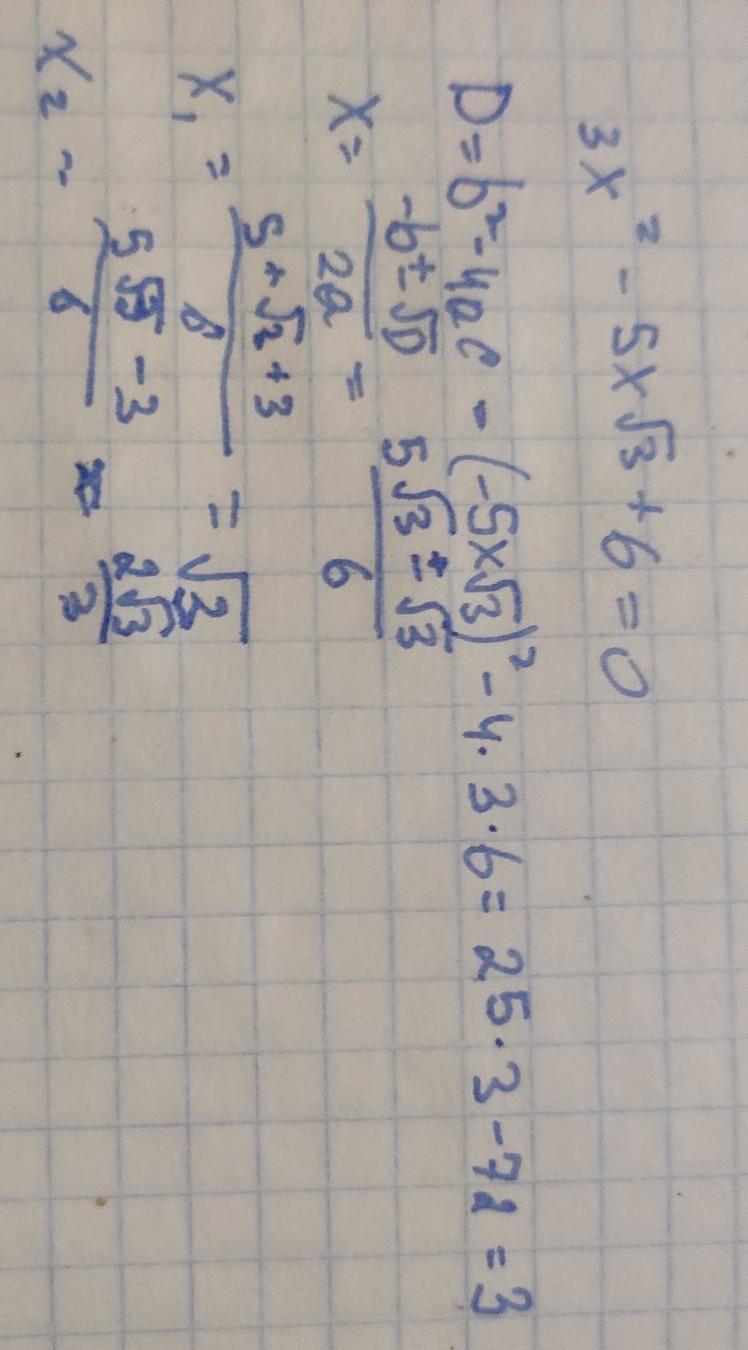 3x² - 5x√3 + 6 = 0
D = b² - 4ac = (-5x√3)² - 4·3·6 = 25·3 - 72 = 3
x = (-b ± √D)/(2a) = (5√3 ± √3)/6
x₁ = (5 + √2 + 3)/6 = √3
x₂ = (5√3 - 3)/6 = (2√3)/3